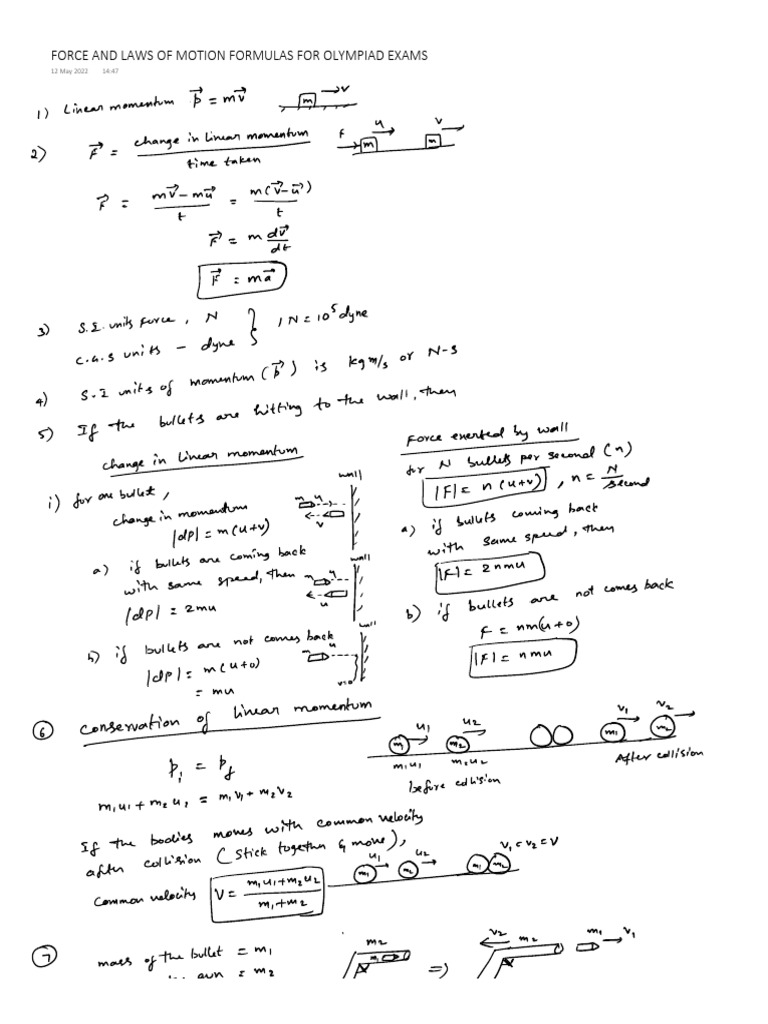 FORCE AND LAWS OF MOTION FORMULAS FOR OLYMPIAD EXAMS
12 May 2022 14:47
1) Linear momentum p⃗ = mv⃗
m → v
2) F⃗ = change in linear momentum / time taken
F m u v m
F⃗ = (mv⃗ - mu⃗)/t = m(v⃗ - u⃗)/t
F⃗ = m dv⃗/dt
F⃗ = ma⃗
3) S.I. units force, N } 1 N = 10⁵ dyne
C.G.S units - dyne
4) S.I units of momentum (p⃗) is kg m/s or N-s
5) If the bullets are hitting to the wall, then
change in linear momentum
i) for one bullet,
change in momentum
|dp| = m(u+v)
m u v wall
a) if bullets are coming back
with same speed, then
|dp| = 2mu
m u u wall
b) if bullets are not comes back
|dp| = m(u+0)
= mu
m u v=0 wall
Force exerted by wall
for N bullets per second (n)
|F| = n(u+v), n = N/second
a) if bullets coming back
with same speed, then
|F| = 2nmu
b) if bullets are not comes back
F = nm(u+0)
|F| = nmu
6 conservation of linear momentum
p_i = p_f
m₁u₁ + m₂u₂ = m₁v₁ + m₂v₂
m₁ u₁ m₂ u₂ m₁ v₁ m₂ v₂
m₁u₁ m₂u₂
before collision
After collision
If the bodies moves with common velocity
after collision (stick together & move),
common velocity V = (m₁u₁+m₂u₂)/(m₁+m₂)
m₁ u₁ m₂ u₂ m₁ m₂ v₁=v₂=V
7 mass of the bullet = m₁
gun = m₂
m₂ m₁ ⇒ v₂ m₂ m₁ v₁